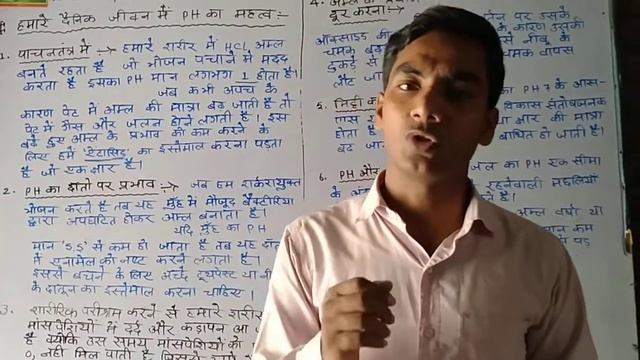 हमारे दैनिक जीवन में PH का महत्व :-
1. पाचनतंत्र में → हमारे शरीर में HCl अम्ल
बनते रहता है जो भोजन पचाने में मदद
करता है इसका PH मान लगभग 1 होता है।
जब कभी अपच के
कारण पेट में अम्ल की मात्रा बढ़ जाती है तो
पेट में गैस और जलन होने लगती है। इस
बढ़े हुए अम्ल के प्रभाव को कम करने के
लिए हमें 'ऐंटासिड' का इस्तेमाल करना पड़ता
है जो एक क्षार है।
2. PH का दाँतो पर प्रभाव :→ जब हम शर्करायुक्त
भोजन करते है तब यह मुँह में मौजूद बैक्टीरिया
द्वारा अपघटित होकर अम्ल बनाता है।
यदि मुँह का PH
मान '5.5' से कम हो जाता है तब यह दाँत
में एनामेल को नष्ट करने लगता है।
इससे बचने के लिए अच्छे टूथपेस्ट या नी
के दातून का इस्तेमाल करना चाहिए।
3. शारीरिक परीश्रम करने से हमारे शरीर
मांसपेशियों में दर्द और कड़ापन आ
है क्योंकि उस समय मांसपेशियों को
O₂ नहीं मिल पाती है
4. अम्ल
दूर करना :→
र्तन पर उसके
ऑक्साइड की
के कारण उसकी
चमक
से नींबू के
टुकड़े से
चमक वापस
लौट जा
5. मिट्टी क
का PH 7 के आस-
पास
विकास संतोषजनक
होता है
या क्षार की मात्रा
बढ़ जा
बाधित हो जाती है।
6. PH और
जल का PH एक सीमा
के अं
रहनेवाली मछलियाँ
अम्ल वर्षा या
मान कम